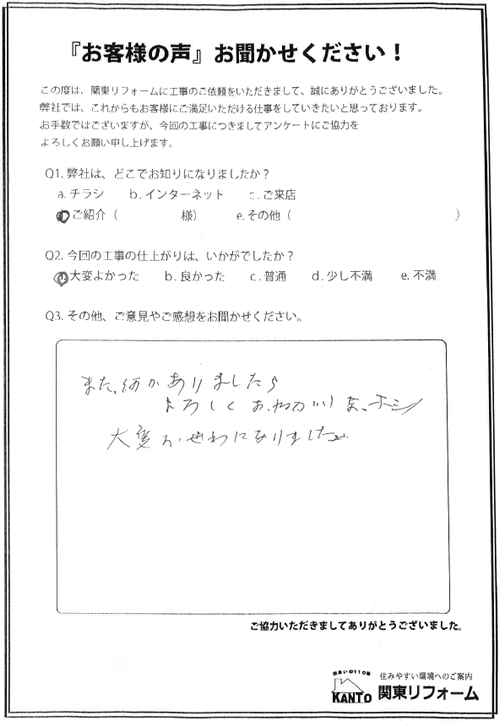 『お客様の声』お聞かせください！
この度は、関東リフォームに工事のご依頼をいただきまして、誠にありがとうございました。
弊社では、これからもお客様にご満足いただける仕事をしていきたいと思っております。
お手数ではございますが、今回の工事につきましてアンケートにご協力を
よろしくお願い申し上げます。
Q1. 弊社は、どこでお知りになりましたか？
a. チラシ b. インターネット c. ご来店
ご紹介（ 様） e. その他（ ）
Q2. 今回の工事の仕上がりは、いかがでしたか？
大変よかった b. 良かった c. 普通 d. 少し不満 e. 不満
Q3. その他、ご意見やご感想をお聞かせください。
また、何かありましたら
よろしくおねがいします。
大変おせわになりました
ご協力いただきましてありがとうございました。
住みやすい環境へのご案内
KANTO 関東リフォーム